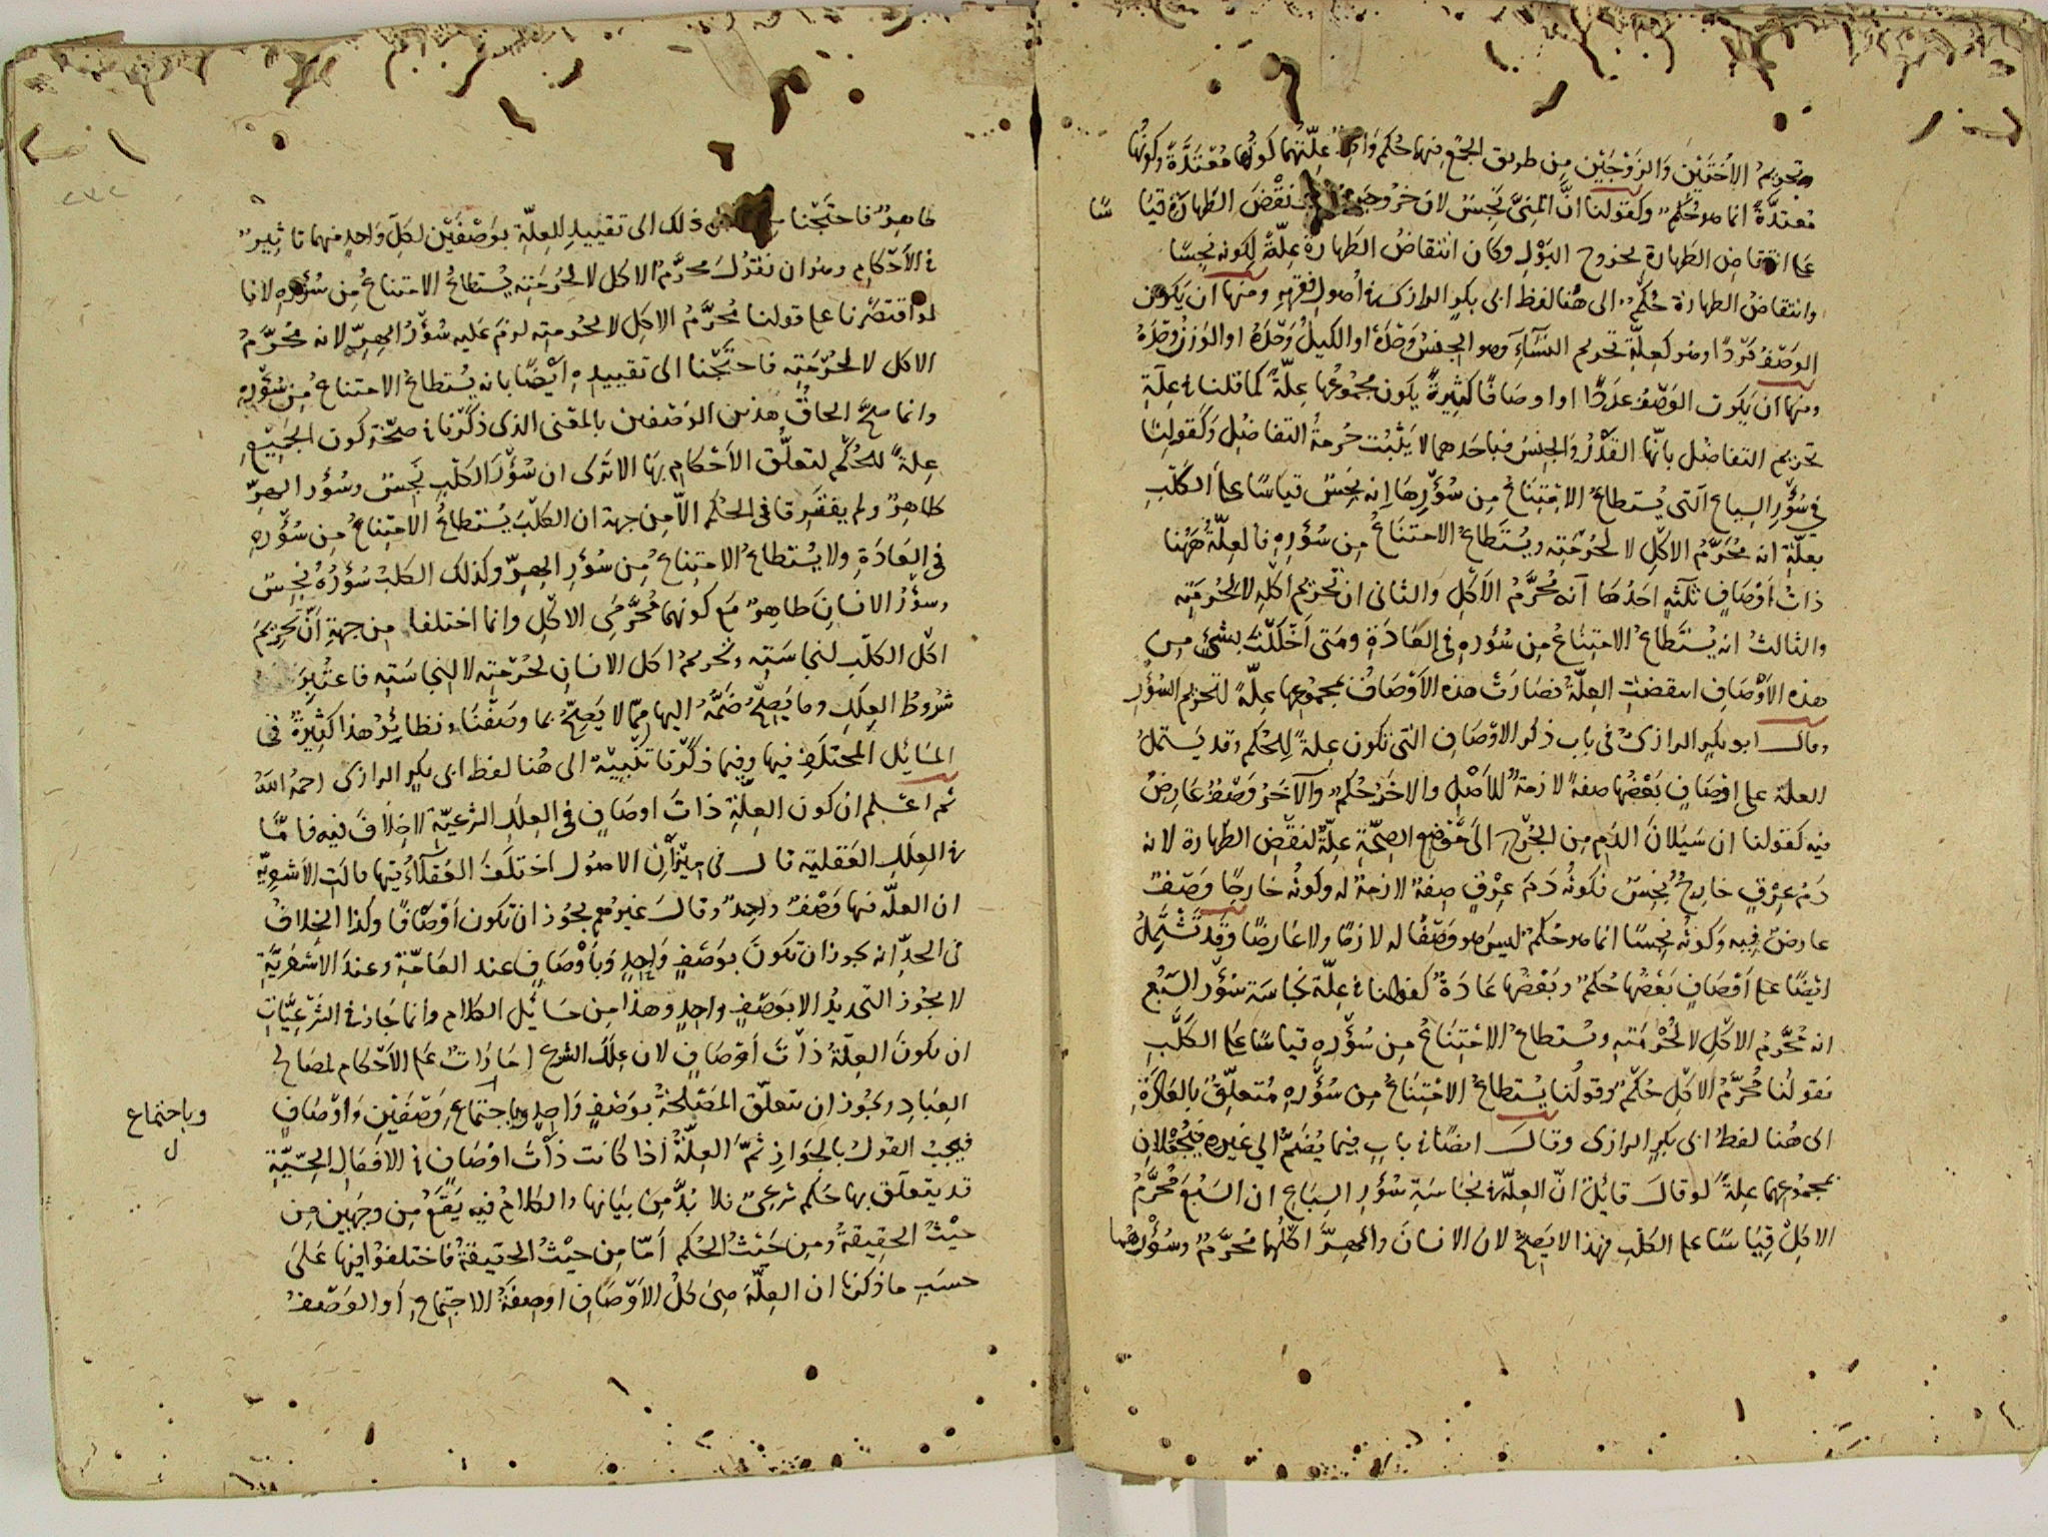 وتحريم الاُختَيْنَ وَالزَوْجَيْن مِن طريق الجَمْع فيهما حُكم وَاحِد عِلّتهما كَونها مُعْتَدَّةً وكونُها
مُعتدَّةً انما هو حُكم وكقولنا انَّ المنِىَّ نَجِسٌ لان خروجَه نَقْضَ الطَهارَة قياسًا
عَلى انتقاضِ الطَهارة بخروج البَوْلِ وكان انتقاضُ الطَهارة عِلّةً لِكونه نَجِسًا
وانتقاضُ الطهارة حُكمٌ الى هُنا لفظ ابى بكرٍ الرازى فى اُصول فقهه ومنها ان يَكون
الوَصْفُ فَرْدًا وهو كعِلّةِ تحريم النسَآءِ وهو الجِنْسُ وَحْدَهُ او الكَيلُ وَحْدَهُ او الوَزنُ وَحْدَهُ
ومنها ان يَكون الوَصْفُ عدَدًا او اوصَافًا كثيرةً يكون مجموعُها عِلّةً كما قلنا فى عِلّةِ
تحريم التفاضل بانّها القَدْرُ وَالجِنسُ فباحَدهما لا يَثْبُت حُرمةُ التفاضُلِ وكَقولنا
فى سُؤْرِ السِباع التى يُستطاعُ الامتِنَاعُ مِن سُؤْرِهَا اِنه نَجِسٌ قياسًا على الكَلْبِ
بعلّةِ انه مُحَرَّمُ الاكْلِ لا لحُرْمَتِه ويُستَطاعُ الامتنَاعُ مِن سُؤْرِه فالعِلّةُ هَهُنا
ذاتُ اَوْصَافٍ ثلثةٍ احَدُهَا اَنه مُحَرَّمُ الاَكْلِ وَالثانى ان تحريم اَكْلِه لا لحُرمَتِه
والثالث انه يُسْتَطاعُ الامتِنَاعُ مِن سُؤْره فى العَادَةِ ومَتى اَخْلَلْتَ بشَىْءٍ مِن
هذه الاَوْصَاف انتقضَتِ العِلّةُ فصَارَتْ هذه الاَوْصَافُ بمجموعِها عِلّةً لتحريم السُؤْرِ
وقال ابو بكر الرازىُ فى باب ذكر الاوْصَاف التى تكون عِلةً لِلحُكم وقد يَشتملُ
العلّة على اوْصَافٍ بَعْضُها صفةٌ لازمةٌ للاَصْلِ والاخَر حُكمٌ وَالآخَرُ وَصْفٌ عَارِضٌ
فيه كقولنا ان سَيَلانَ الدَمِ مِن الجُرْحِ الَى مَوْضِع الصِحّةِ عِلّةٌ لنَقْضِ الطَهارة لانه
دَمُ عِرْقٍ خارجٌ نَجِسٌ فكونُه دَمَ عِرْقٍ صِفةٌ لازمةٌ له وكونُه خارجًا وَصْفٌ
عارضٌ فِيه وَكونُه نَجِسًا انما هو حُكمٌ ليسَ هو وَصْفًا له لازمًا ولا عَارِضًا وَقَدْ تَشْتَمِلُ
ايْضًا على اَوْصَافٍ بَعْضُها حُكمٌ وبَعْضُها عَادَةٌ كقولنا فى عِلّة نجَاسَة سُؤْر السَبُع
انه مُحَرَّمُ الاكْلِ لا لحُرْمَتِه ويُستطاعُ الاِمْتِنَاعُ مِن سُؤْرِه قياسًا على الكَلْبِ
فقولُنا مُحَرَّمُ الاكْلِ حُكْمٌ وقولُنا يُستطاعُ الامْتِنَاعُ مِن سُؤْرِه مُتعلِّقٌ بالعَادَةِ
الى هُنا لفظُ ابى بكرٍ الرازى وقال ايضًا فى باب فيما يُضَمُّ الى غيره فيُجْعَلانِ
بمجموعهما عِلةً لوقالَ قائِلٌ انّ العِلّةَ فى نجاسَةِ سُؤْرِ السِبَاعِ ان السَبُعَ مُحَرَّمُ
الاكِلْ قِيَاسًا على الكَلبِ فهذا لا يَصِحُّ لان الانسانَ والهِرَّ اكلُهما مُحَرَّمٌ وسُؤْرُهُما
طاهِرٌ فاحتَجْنا ذلك الى تقييدِ العِلّةِ بوَصْفَيْن لكلّ وَاحِدٍ منهما تاثِيرٌ
فى الاَحْكامِ وهو ان نقولَ محرَّمُ الاكل لا لحُرمَتِه يُستطاعُ الامتِناعُ مِن سُؤْرِه لانا
لو اقتصَرْنا على قولنا مُحَرَّمُ الاكِلِ لا لحُرمتِه لزمَ عَليه سُؤْرُ الهِرِّ لانه مُحَرَّمُ
الاكل لا لحُرْمَتِه فاحتَجْنا الى تقييدِه ايْضًا بانه يُستطاعُ الامتناعُ مِن سُؤْرِه
وانما صحَّ الحاقُ هذين الوَصْفين بالمعْنى الذى ذكرْنا فى صحّة كون الجَمِيْعِ
عِلةً للحُكمِ لتعلُّق الاَحْكامِ بهَا الا تَرَى ان سُؤْرَ الكَلْبِ نَجِسٌ وسُؤْر الهِرِّ
طاهِرٌ ولم يفتَرِقا فى الحُكم الّا مِن جهة ان الكَلْبَ يُستطاعُ الامتِناعُ مِن سُؤْرِه
فى العَادَةِ ولا يُستطاعُ الامتِناعُ مِن سُؤْرِ الهِرِّ وكذلك الكلبُ سُؤْرُهُ نَجِسٌ
وسؤْرُ الانسانِ طاهِرٌ مَع كونهما مُحَرَّمَىِ الاكْلِ وانما اختلفا مِن جهةِ اَنَّ تحريمَ
اكْل الكلْبِ لنجاسَتِه وتحريمُ اكل الانسانِ لحُرْمَتِه لا لِنجاسَتِه فاعتُبِرَ
شُروطُ العِلَلِ وما يَصِحُّ ضَمُّهُ اليها مِمّا لا يَصِحُّ بما وصَفْنَا ونظائِرُ هذا كثِيرةٌ فى
المسَايْل المختلَفِ فيها وفيما ذكَرْنا تَنْبِيْهٌ الى هُنا لفظ ابى بكرٍ الرازى رحمهُ اللهُ
ثم اعْلم ان كونَ العِلّةِ ذاتَ اوصَافٍ فى العِلَلِ الشرعيّةِ لا خِلافَ فيه فامّا
فى العِلَلِ العَقلية قال فى مِيْزَانِ الاصُول اختلَفَ العُقلاءُ فيها قالتِ الاَشْعَرِيّة
ان العِلّة فيها وَصْفٌ واحِدٌ وقالَ غيرُهم يجُوز ان تكون اَوْصَافًا وكذا الخِلافُ
فى الحدِّ انه يجوز ان تكونَ بوَصْفٍ وَاحِدٍ وَبأوْصَافٍ عند العَامّةِ وعندَ الاَشْعَرِيّةِ
لا يجُوز التحديدُ الا بوَصْفٍ واحِدٍ وهذا مِن مسَايْل الكلام وانما جَاز فى الشَرْعِيّاتِ
ان تكونَ العِلّةُ ذاتَ اَوْصَافٍ لان عِلَلَ الشرع اَمَارَاتٌ عَلى الاَحْكام لمصَالح
العِبَادِ ويجُوز ان تتعلّق المَصْلحَةُ بوَصْفٍ وَاحِدٍ وباجتماعِ وَصْفَيْنِ وَاوْصَافٍ
وباجتماع
ل
فيَجِبُ القولُ بالجَوازِ ثمّ العِلّةُ اذا كانت ذاتَ اوْصَافٍ فى الافعَالِ الحِسّيّةِ
قد يتعلّق بها حُكم شرعىٌ فلا بُدَّ مِن بَيانها والكلامُ فيه يَقَعُ مِن وجهَيْن مِن
حيْثُ الحقِيقةُ ومِن حَيْثُ الحُكم اَمّا مِن حيْثُ الحقيقةُ فاختلفوا فيها عَلىَ
حسَبِ ما ذكرنا ان العِلّةَ هِىَ كلُ الاَوْصَافِ اوصِفَةُ الاجتِماعِ اَو الوَصْفُ